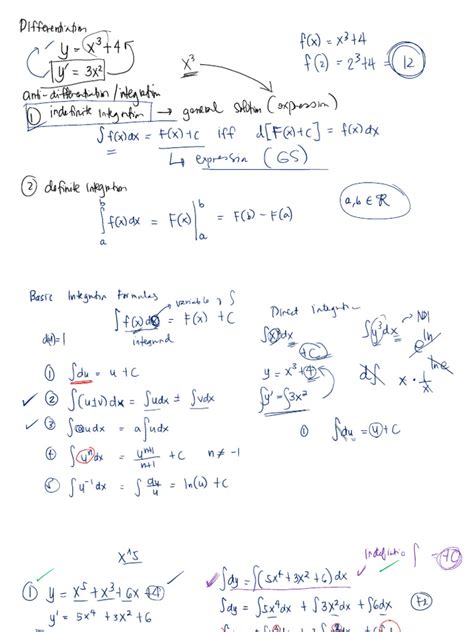 Differentiation
y = x³+4
y' = 3x²
x³
f(x) = x³+4
f(2) = 2³+4 = 12
anti-differentiation/integration
① indefinite integration → general solution (expression)
∫f(x)dx = F(x)+C iff d[F(x)+C] = f(x)dx
↳ expression (GS)
② definite integration
a,b ∈ ℝ
∫ₐᵇ f(x)dx = F(x)|ₐᵇ = F(b) - F(a)
Basic Integration Formulas
variable of ∫
∫f(x)dx = F(x) + C
integrand
① ∫du = u + C
✓ ② ∫(u±v)dx = ∫udx ± ∫vdx
✓ ③ ∫audx = a∫udx
∫uⁿdx = uⁿ⁺¹/n+1 + C n ≠ -1
∫u⁻¹dx = ∫du/u = ln(u) + C
Direct integration
∫x³dx
+C
y = x³+4
y' = ∫3x²
∫y³dx → NDI
x · 1/x
① ∫du = u + C
x^5
① y = x⁵ + x³ + 6x + 4
y' = 5x⁴ + 3x² + 6
Indefinite ∫
∫dy = ∫(5x⁴ + 3x² + 6)dx
∫dy = ∫5x⁴dx + ∫3x²dx + ∫6dx